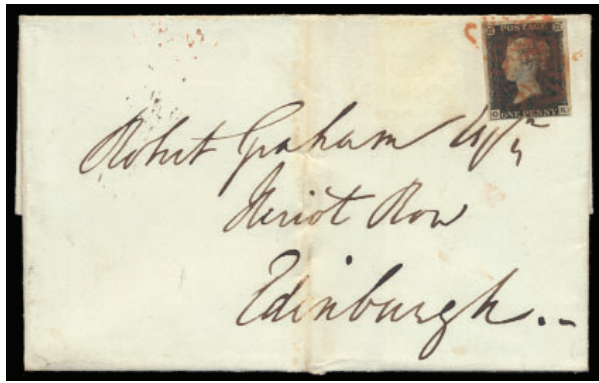 POSTAGE
ONE PENNY
O K
Robert Graham Esqr
Heriot Row
Edinburgh.